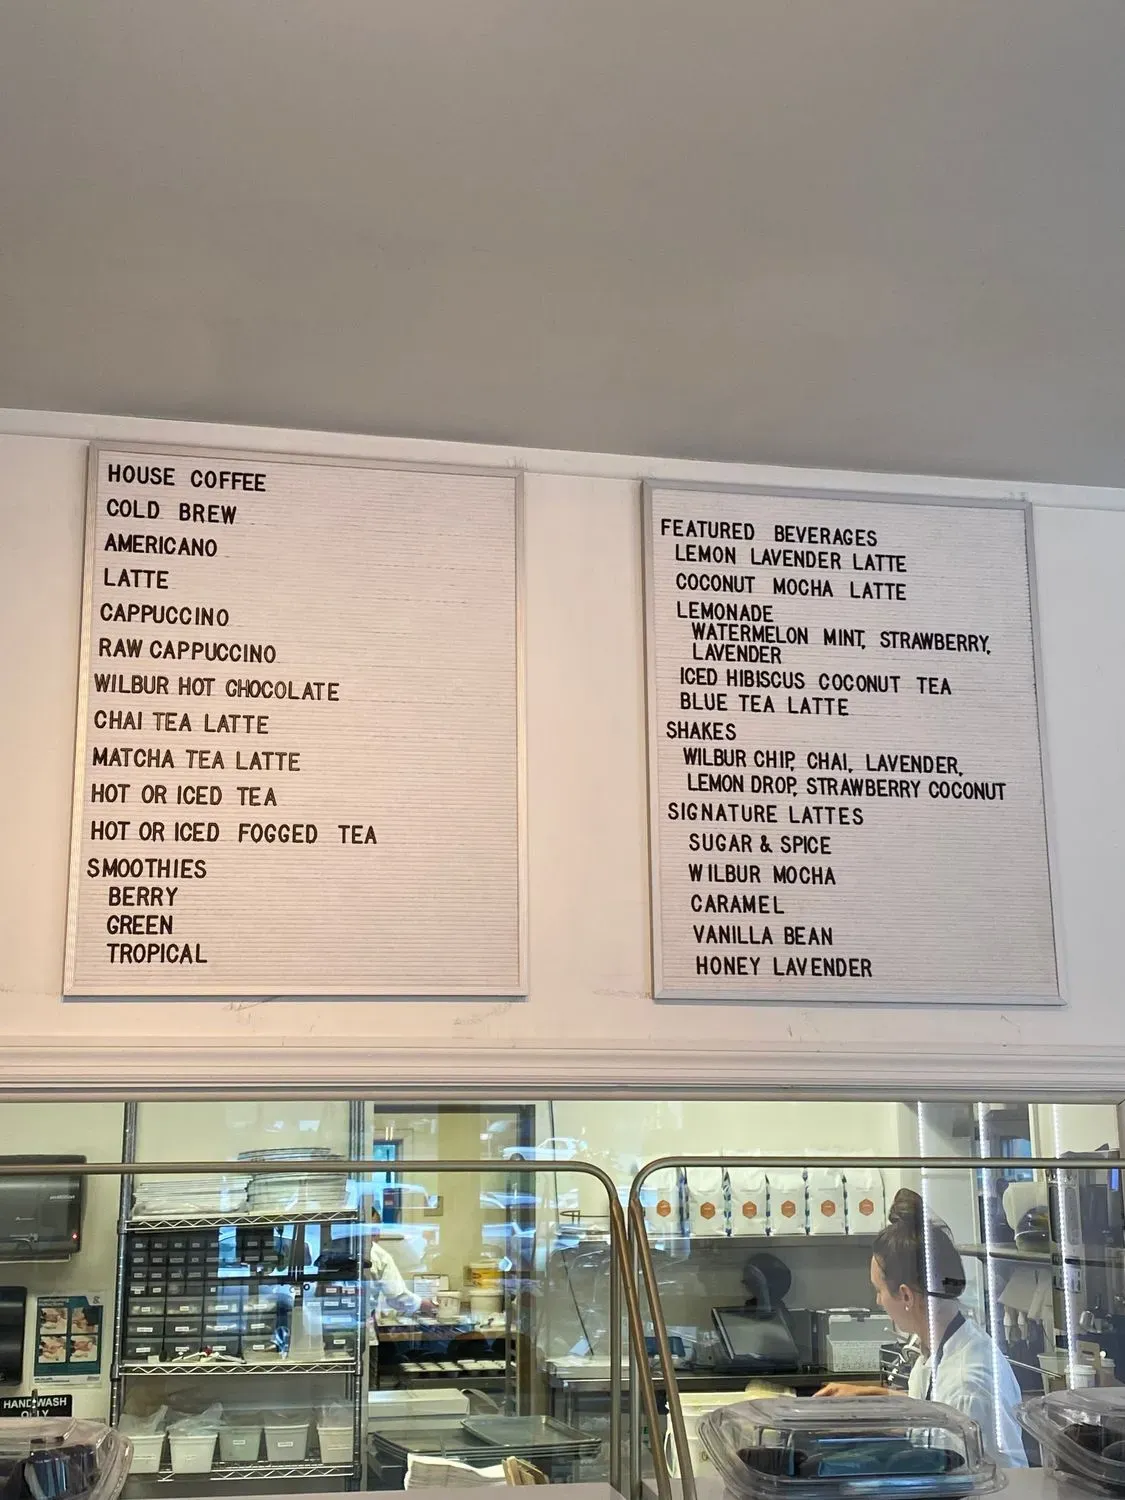 HOUSE COFFEE
COLD BREW
AMERICANO
LATTE
CAPPUCCINO
RAW CAPPUCCINO
WILBUR HOT CHOCOLATE
CHAI TEA LATTE
MATCHA TEA LATTE
HOT OR ICED TEA
HOT OR ICED FOGGED TEA
SMOOTHIES
BERRY
GREEN
TROPICAL
FEATURED BEVERAGES
LEMON LAVENDER LATTE
COCONUT MOCHA LATTE
LEMONADE
WATERMELON MINT, STRAWBERRY,
LAVENDER
ICED HIBISCUS COCONUT TEA
BLUE TEA LATTE
SHAKES
WILBUR CHIP, CHAI, LAVENDER,
LEMON DROP, STRAWBERRY COCONUT
SIGNATURE LATTES
SUGAR & SPICE
WILBUR MOCHA
CARAMEL
VANILLA BEAN
HONEY LAVENDER
HAND WASH
ONLY